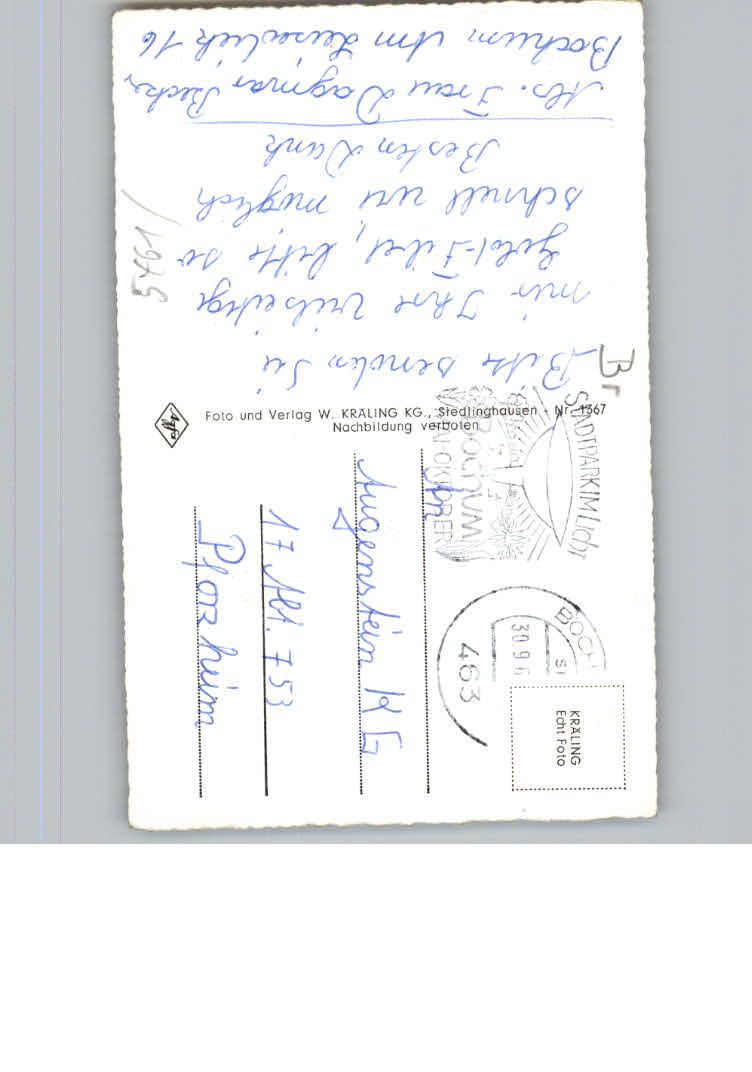 Bitte senden Sie
mir Ihre vielseitige
Gold-Fibel, bitte so
schnell wie möglich
Besten Dank
Abs. Frau Dagmar Becker
Bochum Am
16
Foto und Verlag W. KRÄLING KG., Siedlinghausen - Nr. 1367
Nachbildung verboten
Agfa
STADTPARK IM LICHT
BOCHUM
OKTOBER
BOCH
30.9.6
463
KRÄLING
Echt Foto
An
Augenstein KG
17 Abt. 753
Pforzheim
Br